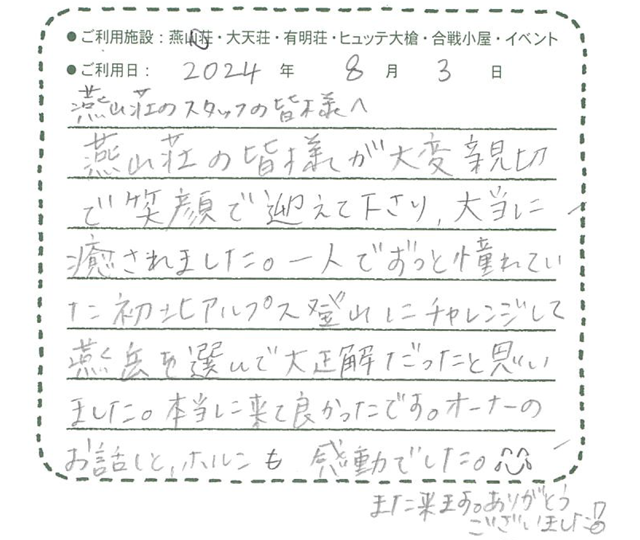 ●ご利用施設：燕山荘・大天荘・有明荘・ヒュッテ大槍・合戦小屋・イベント
●ご利用日：2024年 8月 3日
燕山荘のスタッフの皆様へ
燕山荘の皆様が大変親切
で笑顔で迎えて下さり,大当に
癒されました。一人でずっと憧れてい
た初北アルプス登山にチャレンジして
燕岳を選んで大正解だったと思い
ました。本当に来て良かったです。オーナーの
お話しと,ホルンも感動でした。
また来ます。ありがとう
ございました